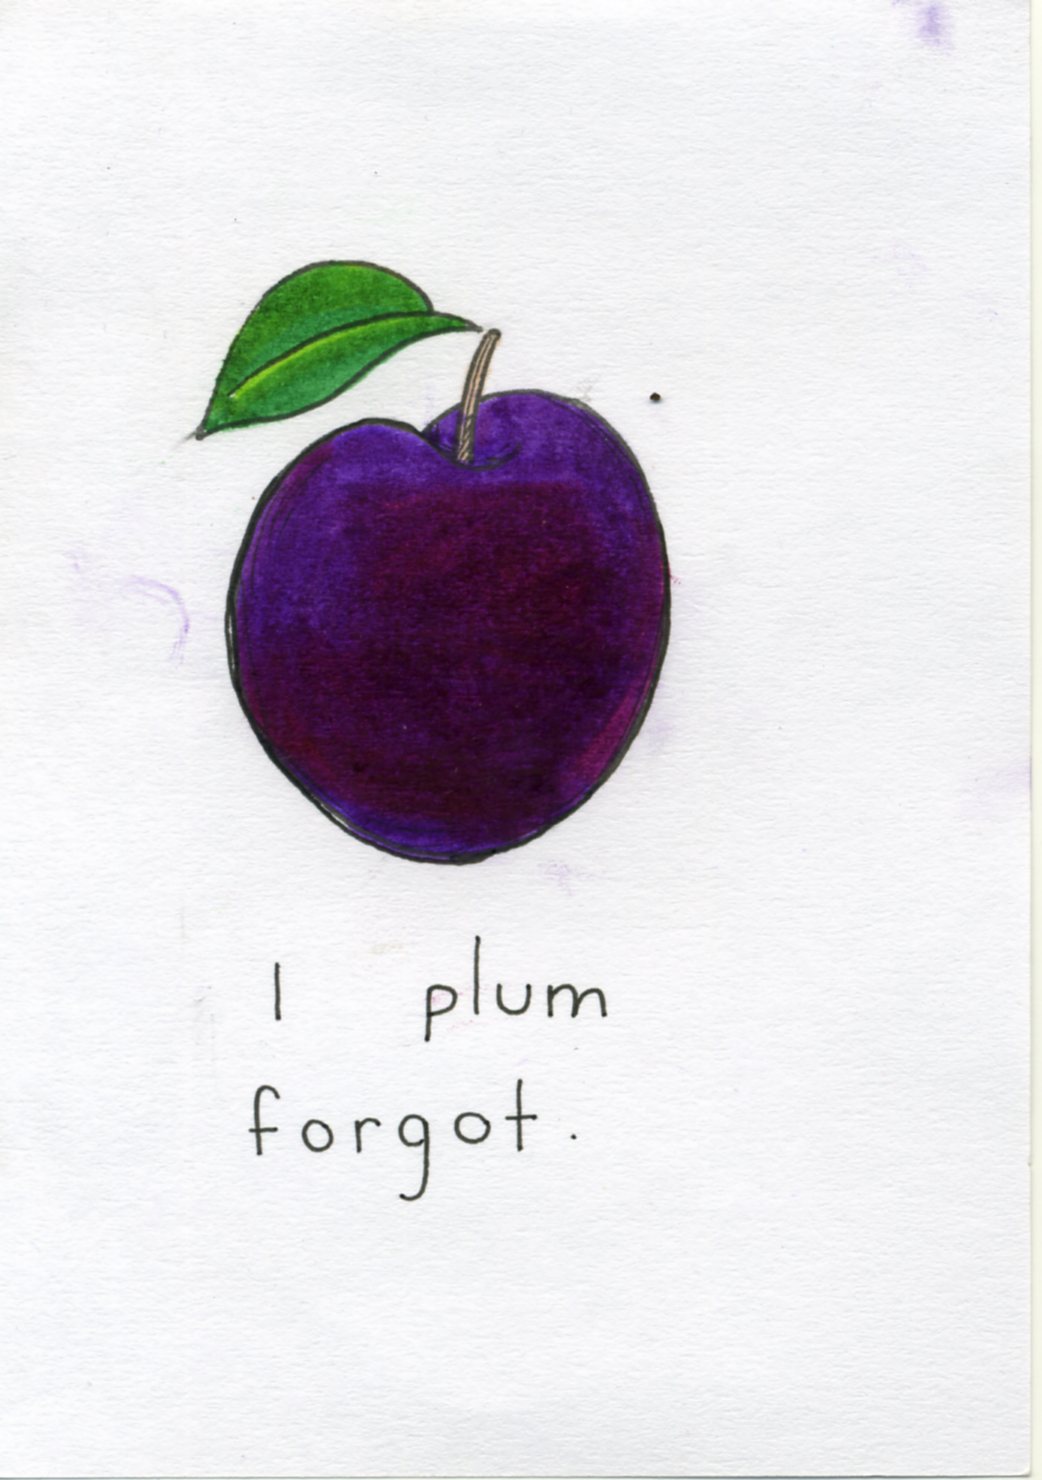 I plum
forgot.